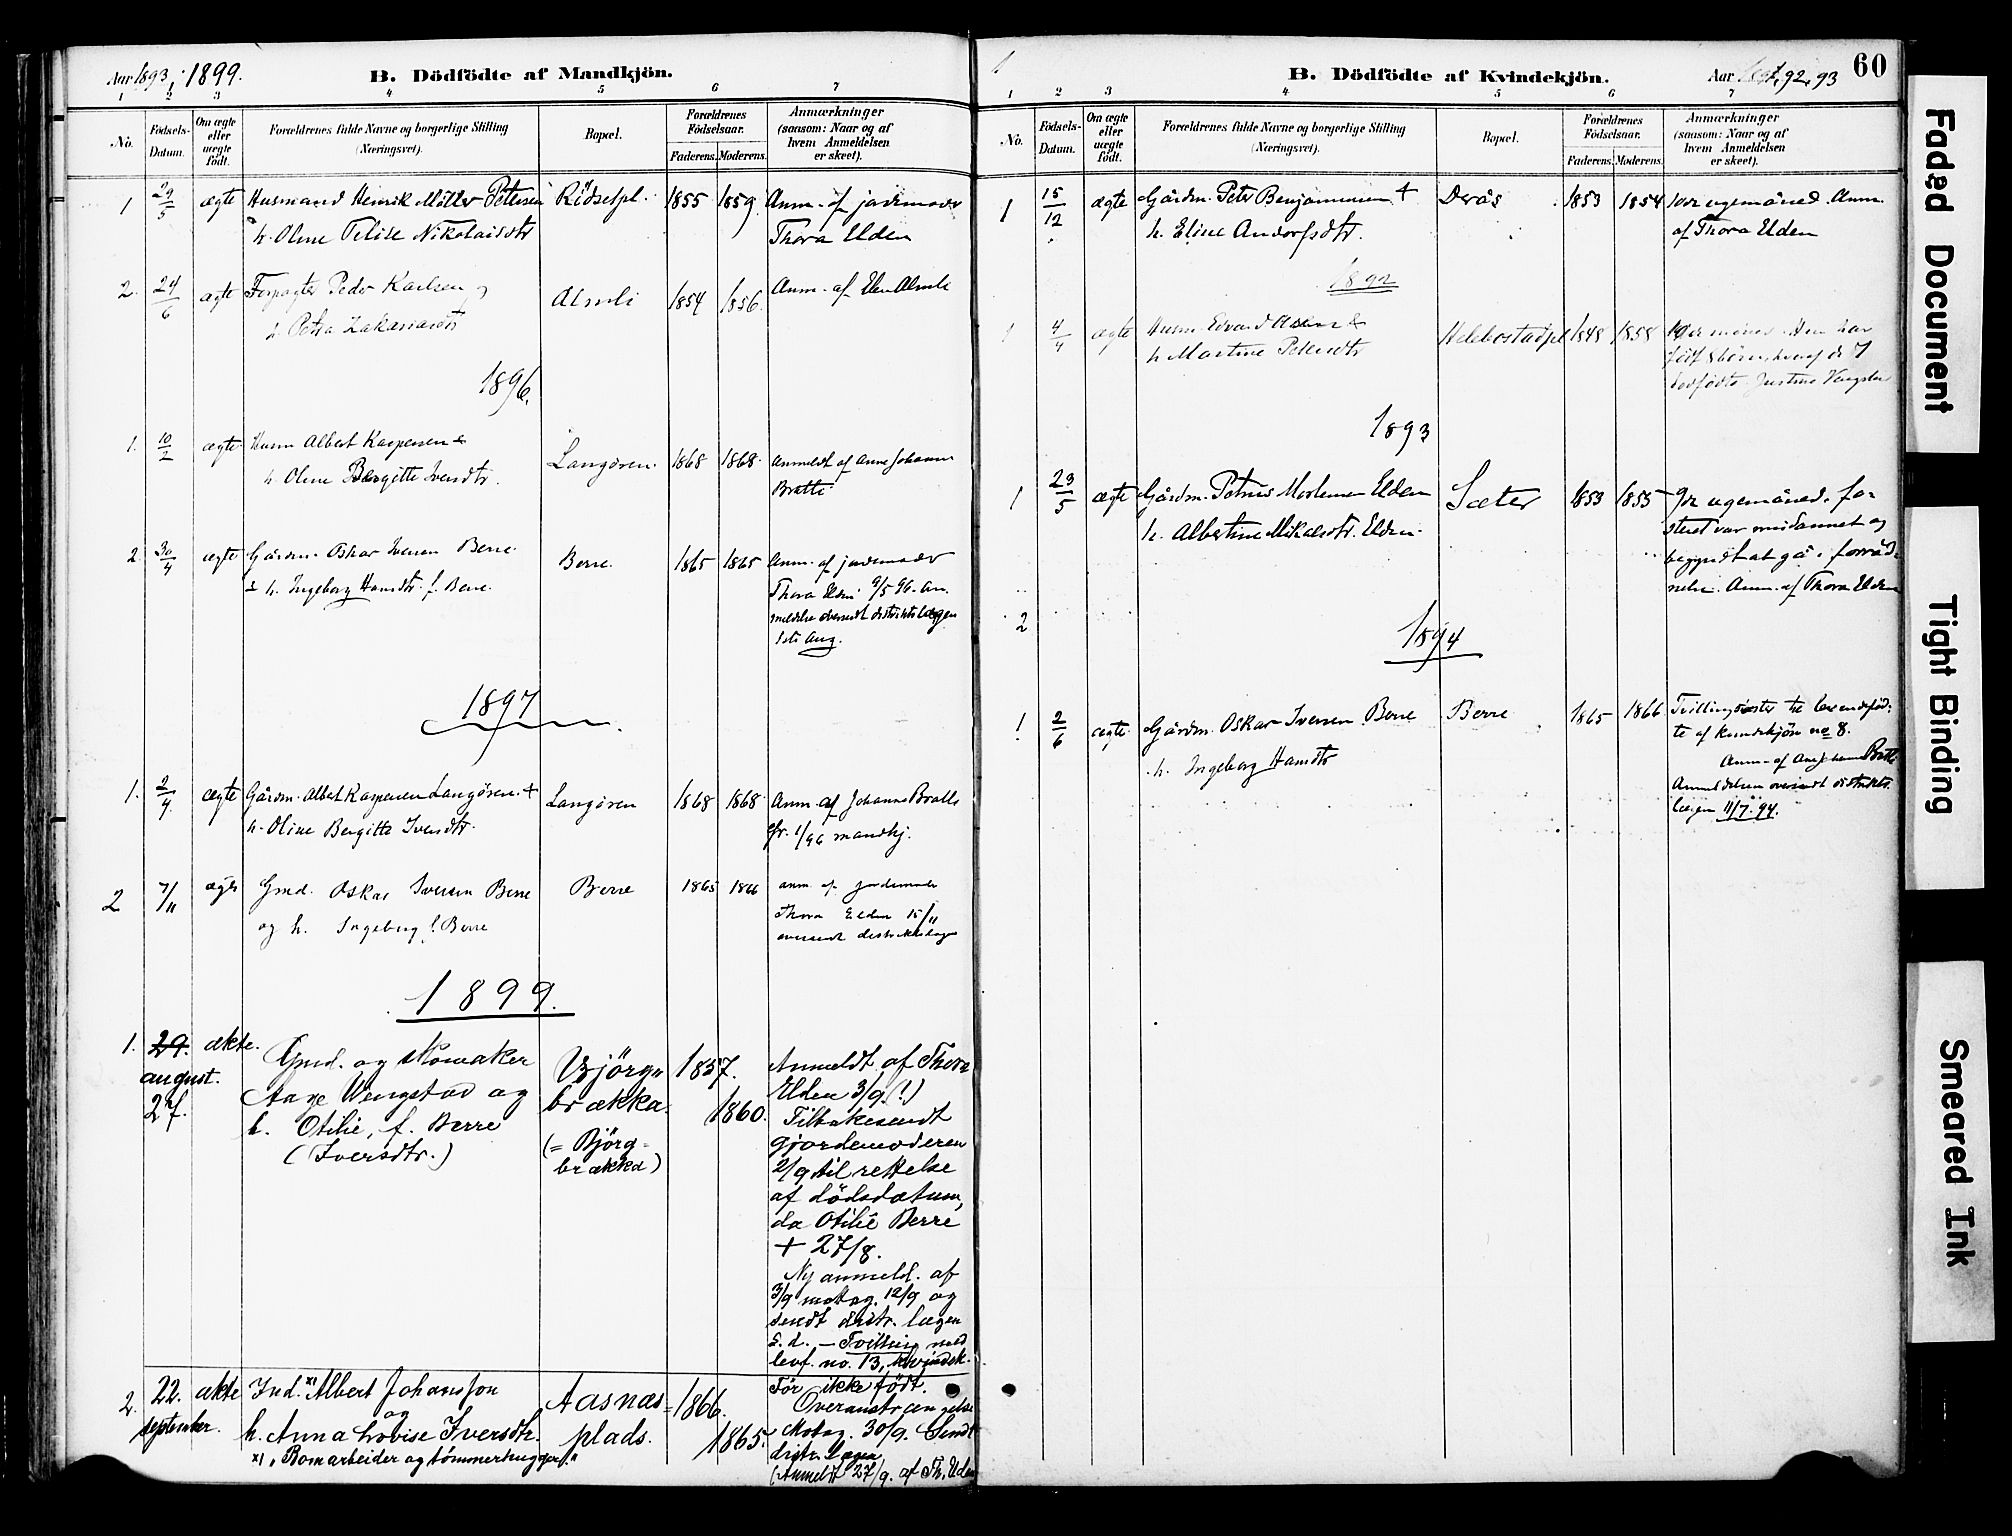 Aar 1893, 1899.
B. Dödfödte af Mandkjön.
1 2 3 4 5 6 7
No.
Födsels-
Datum.
Om ægte
eller
uægte
født.
Forældrenes fulde Navne og borgerlige Stilling
(Næringsvei).
Bopæl.
Forældrenes
Födselsaar.
Faderens. Moderens.
Anmærkninger
(saasom: Naar og af
hvem Anmeldelsen
er skeet).
1 29/5 ægte Husmand Henrik Möller Petersen Rödsetpl. 1855 1859 Anm. af jordemoder
h. Oline Nikolaisdtr Thora Elden
2. 24/6 ægte Forpagter Peder Karlsen Almli 1854 1856. Anm. af Almli
h. Petra Zakariasdtr
1896.
1. 10/2 ægte Husm Albert Kaspersen &
h. Oline Bergitte Iversdtr. Langören. 1868 1868. Anmeldt af Anne Johanna
Bratli
2 30/4 ægte Gårdm. Oskar Iversen Berre. Berre. 1865 1865 Anm. af jordemoder
& h. Ingeborg Hansdtr. f. Berre. Thora Elden 9/5 96. An-
meldelse oversendt distriktslægen
1897
1. 2/4 ægte Gårdm. Albert Kaspersen Langören. + Langören 1868 1868. Anm. af Johanna Bratli
h. Oline Bergitte Iversdtr. cfr. 1/96 mandkj.
2 7/11 ægte Gmd. Oskar Iversen Berre Berre 1865 1866 anm. af jordemoder
og h. Ingeborg f. Berre Thora Elden 15/11
oversendt distriktslægen
1899.
1. 29. ækte. Gmd. og skomaker Björgn- 1857. Anmeldt af Thora
august. Aage Wengstad og brækka. 1860. Elden 3/9. (!)
27. h. Otilie, f. Berre (= Björg- Tilbakesendt
(Iversdtr.) brækka) gjordemoderen
2/9 til rettelse
af dödsdatum,
da Otilie Berre
+ 27/8.
Ny anmeld. af
3/9 motag. 12/9 og
sendt distr. lægen
s. d. — Tvilling med
levf. no. 13, kvindek.
2. 22. ækte Ind. x) Albert Johansson Aasnæs- 1866. För ikke födt.
september. og plads. 1865. Overanstrængelse
h. Anna Lovise Iversdtr. Motag. 30/9. Sendt
x) "Bomarbeider og tömmerhugger." distr. lægen
(Anmeldt 27/9. af Th. Elden
60
B. Dödfödte af Kvindekjön. Aar 92, 93
1 2 3 4 5 6 7
No.
Födsels-
Datum.
Om ægte
eller
uægte
födt.
Forældrenes fulde Navne og borgerlige Stilling
(Næringsvei).
Bopæl.
Forældrenes
Födselsaar.
Faderens. Moderens.
Anmærkninger
(saasom: Naar og af
hvem Anmeldelsen
er skeet).
1 15/12 ægte Gårdm. Peter Benjaminsen + Derås 1853 1854 10de ugemåned. Anm.
h. Eline Andorfsdtr. af Thora Elden
1892
1 4/4 ægte Husm. Edvard Olsen &
h. Martine Petersdtr Heldbostadpl 1848 1858
1893
1 23/5 ægte Gårdm. Petrus Mortensen Elden Sæter 1853 1855 9de ugemåned. fo-
h. Albertine Mikalsdtr. Elden. steret var misdannet og
begyndt at gå i forråd-
nelse. Anm. af Thora Elden
2
1894
1 2/6 ægte Gårdm. Oskar Iversen Berre Berre 1865 1866 Tvillingsöster til levendefød-
h. Ingeborg Hansdtr te af kvindekjön no 8.
Anm. af Bratli
Anmeldelsen oversendt distrikts-
lægen 11/7. 94.
Faded Document
Tight Binding
Smeared Ink